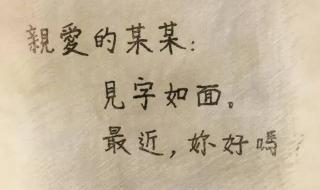 親愛的某某：
見字如面。
最近，妳好嗎